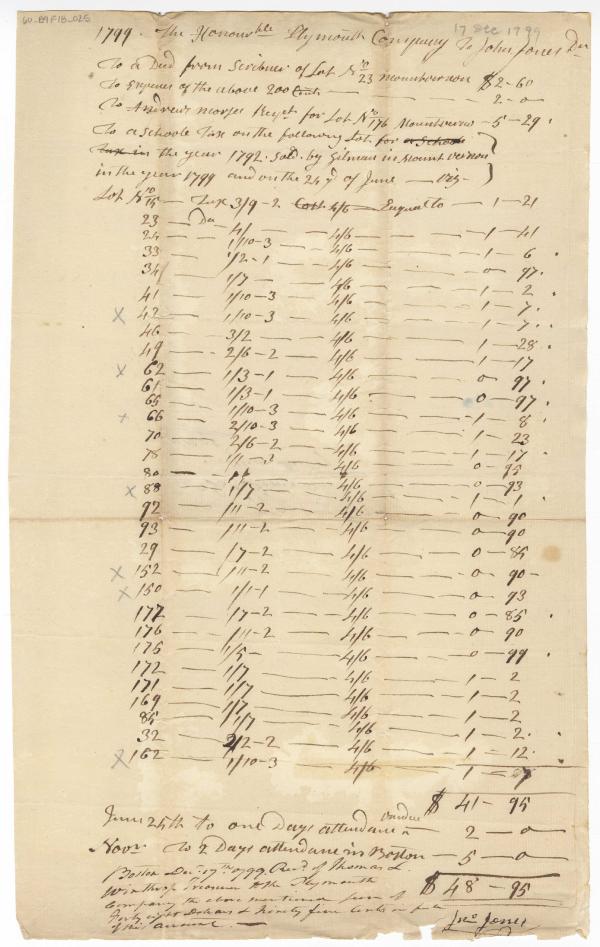 60-B9F18-025
17 Dec 1799
1799. The Honourble Plymouth Company To John Jones Dr
To a Deed from Scribner of Lot No 23 mountvernon $2-60
To Expences of the above 200 Cents 2-0
To Andrew morse Recpt for Lot No 176 Mountvernon - 5-29
To a Schoole Tax on the following Lot for a School
Tax in the year 1792. Sold by Gilman in Mount vernon
in the year 1799 and on the 24 d of June - viz-
Lot No 15 - Tax 3/9-2 Cost 4/6 - Equal to - 1-21
23 - Do 4/ - 4/6 - 1-41
24 - 1/10-3 4/6
33 - 1/2-1 4/6 - 1-6
34 - 1/7 - 4/6 - 0-97
41 - 1/10-3 4/6 - 1-2
x 42 - 1/10-3 4/6 - 1-7
46 - 3/2 4/6 - 1-7
49 - 2/6-2 4/6 - 1-28
x 62 - 1/3-1 4/6 - 1-17
61 - 1/3-1 4/6 - 0-97
65 - 1/10-3 4/6 - 0-97
x 66 - 2/10-3 4/6 - 1-8
70 - 2/6-2 4/6 - 1-23
78 - 1/1-2 4/6 - 1-17
80 - 4/6 - 0-95
x 88 - 1/7 4/6 - 0-93
92 - 1/11-2 4/6 - 1-1
93 - 1/11-2 4/6 - 0-90
29 - 1/7-2 4/6 - 0-90
x 152 - 1/11-2 4/6 - 0-85
x 150 - 1/1-1 4/6 - 0-90
177 - 1/7-2 4/6 - 0-93
176 - 1/11-2 4/6 - 0-85
175 - 1/5- 4/6 - 0-90
172 - 1/7 4/6 - 0-99
171 - 1/7 4/6 - 1-2
169 - 1/7 4/6 - 1-2
85 - 1/7 4/6 - 1-2
32 - 2/2-2 4/6 - 1-2
x 162 - 1/10-3 4/6 - 1-12
1-7
$41-95
June 25th to one Days attendance vendue 2-0
Novr To 2 Days attendance in Boston - 5-0
$48-95
Boston Decr 17th 1799 Recd of Thomas L.
Winthrop Treasurer to the Plymouth
Company the above mentioned sum of
Forty eight Dollars & Ninety five Cents in full
of this account -
Jno Jones